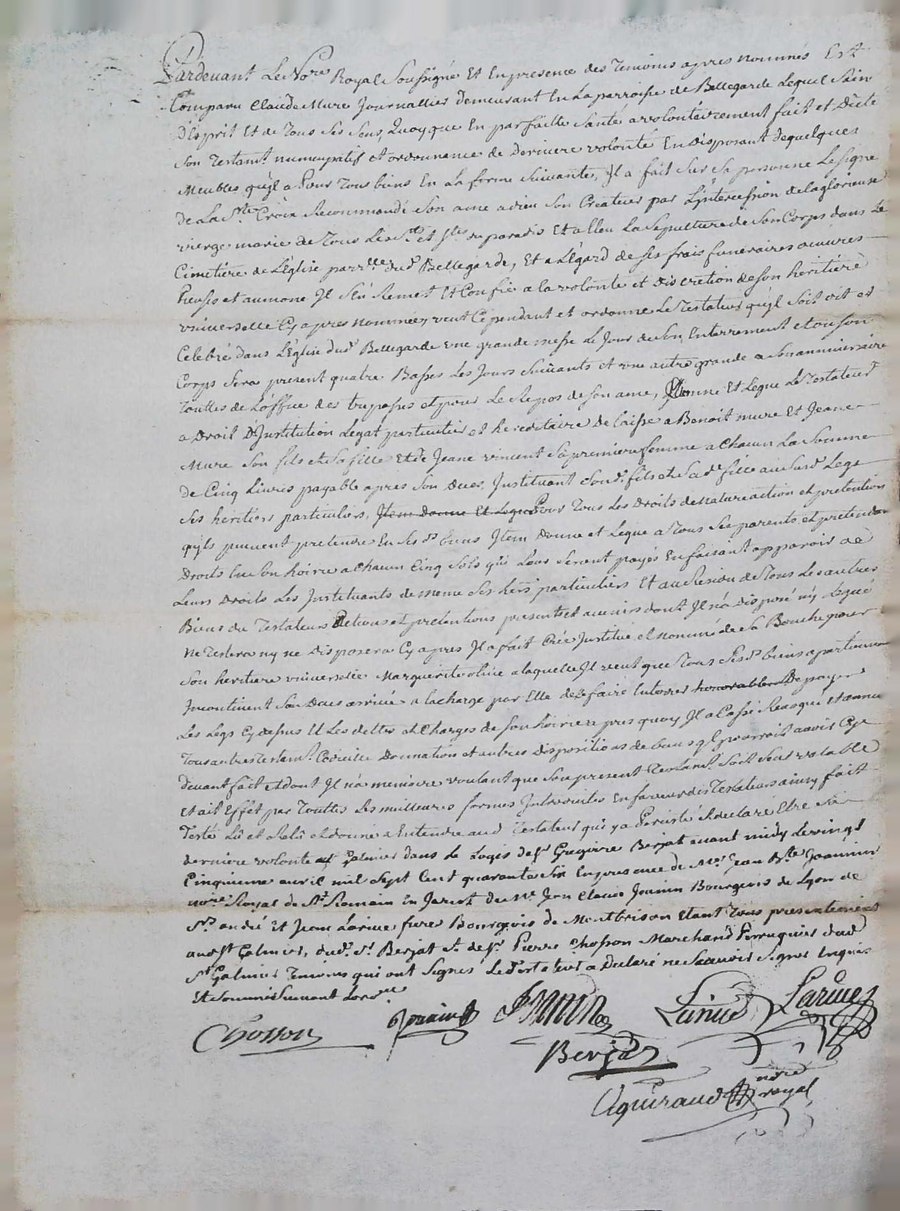 Pardevant Le No.re Royal Soussigné Et En presence des Temoins apres nommés Est
Comparu Claude Mure Journallier demeurant En La parroisse de Bellegarde Lequel Sain
D'Esprit Et de Tous Ses Sens Quoy que En parfaitte Santé a volontairement fait et Dicté
Son Testam.t nuncupatif et ordonnance de Derniere volonté En disposant de quelques
Meubles qu'il a Pour Tous biens En La forme Suivante, Il a fait Sur Sa personne Le Signe
de La S.te Croix Recommandé Son ame a dieu Son Createur par L'jntercession de la glorieuse
vierge marie de Tous Les S.ts et S.tes du paradis Et a Eleu La Sepulture de Son Corps dans Le
Cimetiere de L'église parr.lle dud. Bellegarde, Et a L'égard de Ses frais funeraires œuvres
Pieuses et aumone Il S'en Remet Et Confie a la volonté et Discretion de Son heritiere
universelle Cy apres nommée, veut Cependant et ordonne Le Testateur qu'il Soit dit et
Celebré dans L'église dud. Bellegarde une grande messe Le Jour de Son Enterrement et ou Son
Corps Sera present quatre Basses Les Jours Suivants et une autre grande a Son anniversaire
Touttes de L'office des trepassés et pour Le Repos de Son ame, Donne Et Legue Le Testateur
a Droit D'Jnstitution Legat particulier et hereditaire De laisse a Benoit mure Et Jeane
Mure Son fils et Sa fille Et de Jeane vincent Sa premiere femme a Chacun La Somme
de Cinq Livres payable apres Son Deces, Jnstituant Sond. fils et Sa d. fille au Susd. Legs
Ses heritiers particuliers, Item Donne Et Legue Pour Tous Les Droits de nature action et pretentions
qu'ils peuvent pretendre En Ses d. biens Item Donne et Legue a Tous Ses parents et pretendans
Droits En Son hoirie a Chacun Cinq Sols qui Leurs Seront payés En faisant apparoir de
Leurs Droits Les Jnstituants de meme Ses hers particuliers Et au Residu de Tous Les autres
Biens du Testateur actions et pretentions presentes et avenirs dont Il n'a Disposé ny Legué
Ne Testera ny ne Disposera Cy apres Il a fait Créé Jnstitué et nommé de Sa Bouche pour
Son heritiere universelle Marguerite a laquelle Il veut que Tous Sesd. biens apartiennent
Jncontinent Son Deces arrivé a la charge par Elle de le faire Enterrer honorablement De payer
Les Legs Cy dessus Et Les dettes et Charges de Son hoirie apres quoy Il a Cassé Revoqué Et annulé
Tous autres Testam.ts Codicille Donnation et autres Dispositions de biens qu'il pourroit avoir Cy
devant fait et dont Il n'a memoire voulant que Son present Testam.t Soit Seul valable
Et ait Effet par Touttes Les meilleures formes Introduites En faveur des Testateurs ainsy fait
Testé Lû et Relû et donné a Entendre aud. Testateur qui y a Persisté a declaré Etre Sa
derniere volonté a S.t Galmier dans Le Logis de S.r Gregoire Berjat avant midy Le vingt
Cinquieme avril mil Sept Cent quarante Six En presence de M.re Jean B.te Joannin
no.re Royal de S.t Romain En Jarest de M.e Jean Claude Joanin Bourgeois de Lyon de
S.rs andré Et Jean Larive frere Bourgeois de Montbrison Etant Tous presentement
aud. S.t Galmier, dud. S.r Berjat Et de S.r Pierre Chosson Marchand Perruquier dud.
S.t Galmier Temoins qui ont Signés Le Testateur a Declaré ne Scavoir Signer Enquis
Et Sommé Suivant Lord.ce
Chosson Joanin Joannin Larive Larive
Berjat
Aguiraud no.re royal